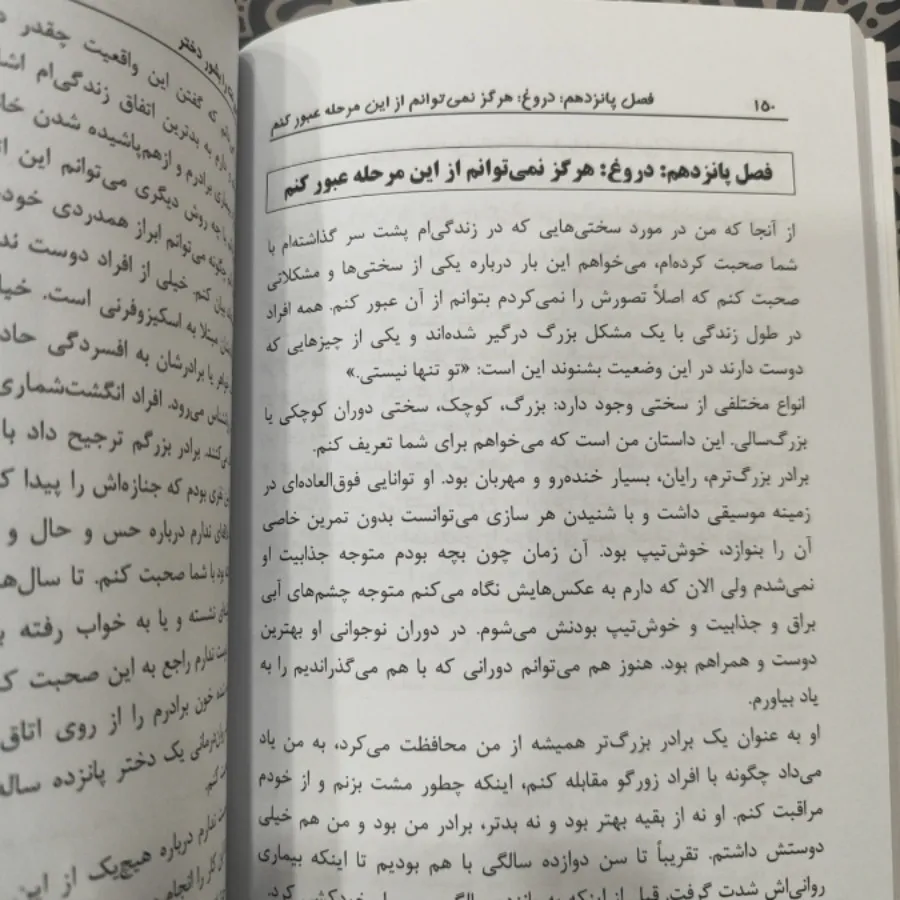 ۱۵۰ فصل پانزدهم: دروغ: هرگز نمی‌توانم از این مرحله عبور کنم
فصل پانزدهم: دروغ: هرگز نمی‌توانم از این مرحله عبور کنم
از آنجا که من در مورد سختی‌هایی که در زندگی‌ام پشت سر گذاشته‌ام با
شما صحبت کرده‌ام، می‌خواهم این بار درباره یکی از سختی‌ها و مشکلاتی
صحبت کنم که اصلاً تصورش را نمی‌کردم بتوانم از آن عبور کنم. همه افراد
در طول زندگی با یک مشکل بزرگ درگیر شده‌اند و یکی از چیزهایی که
دوست دارند در این وضعیت بشنوند این است: «تو تنها نیستی.»
انواع مختلفی از سختی وجود دارد: بزرگ، کوچک، سختی دوران کوچکی یا
بزرگ‌سالی. این داستان من است که می‌خواهم برای شما تعریف کنم.
برادر بزرگ‌ترم، رایان، بسیار خنده‌رو و مهربان بود. او توانایی فوق‌العاده‌ای در
زمینه موسیقی داشت و با شنیدن هر سازی می‌توانست بدون تمرین خاصی
آن را بنوازد، خوش‌تیپ بود. آن زمان چون بچه بودم متوجه جذابیت او
نمی‌شدم ولی الان که دارم به عکس‌هایش نگاه می‌کنم متوجه چشم‌های آبی
براق و جذابیت و خوش‌تیپ بودنش می‌شوم. در دوران نوجوانی او بهترین
دوست و همراهم بود. هنوز هم می‌توانم دورانی که با هم می‌گذراندیم را به
یاد بیاورم.
او به عنوان یک برادر بزرگ‌تر همیشه از من محافظت می‌کرد، به من یاد
می‌داد چگونه با افراد زورگو مقابله کنم، اینکه چطور مشت بزنم و از خودم
مراقبت کنم. او نه از بقیه بهتر بود و نه بدتر، برادر من بود و من هم خیلی
دوستش داشتم. تقریباً تا سن دوازده سالگی با هم بودیم تا اینکه بیماری
روانی‌اش شدت گرفت. قبل از اینکه به
دختر
که گفتن این واقعیت چقدر
به بدترین اتفاق زندگی‌ام
برادرم و ازهم‌پاشیده شدن
چه روش دیگری می‌توانم این
چگونه می‌توانم ابراز همدردی
بیان کنم. خیلی از افراد دوست
مبتلا به اسکیزوفرنی است.
با برادرشان به افسردگی
می‌رود. افراد انگشت‌شماری
برادر بزرگم ترجیح داد با
بودم که جنازه‌اش را پیدا
ندارم درباره حس و حال و
با شما صحبت کنم. تا
نشسته و یا به خواب رفته
ندارم راجع به این صحبت
خون برادرم را از روی اتاق
یک دختر پانزده
کنم.
ندارم درباره هیچ‌یک از این
را انجام